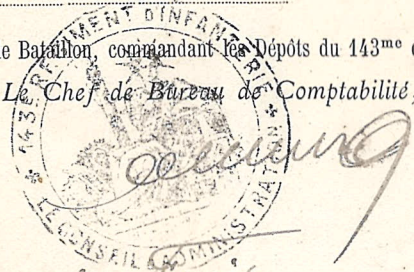 de Bataillon, commandant les Dépôts du 143me
Le Chef de Bureau de Comptabilité.
* 143E REGIMENT D'INFANTERIE *
LE CONSEIL D'ADMINISTRATION